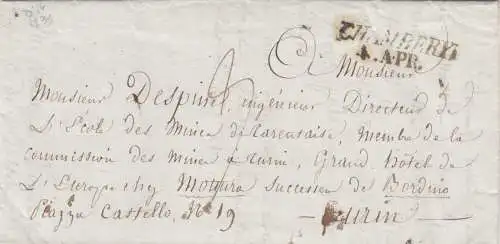 CHAMBERY
4. APR.
A Monsieur
Monsieur Despine, ingénieur Directeur de
L'École des Mines de Tarentaise, Membre de la
Commission des Mines à Turin, Grand Hôtel de
L'Europe chez Mottura successeur de Bordino
Piazza Castello, N° 19 — Turin —